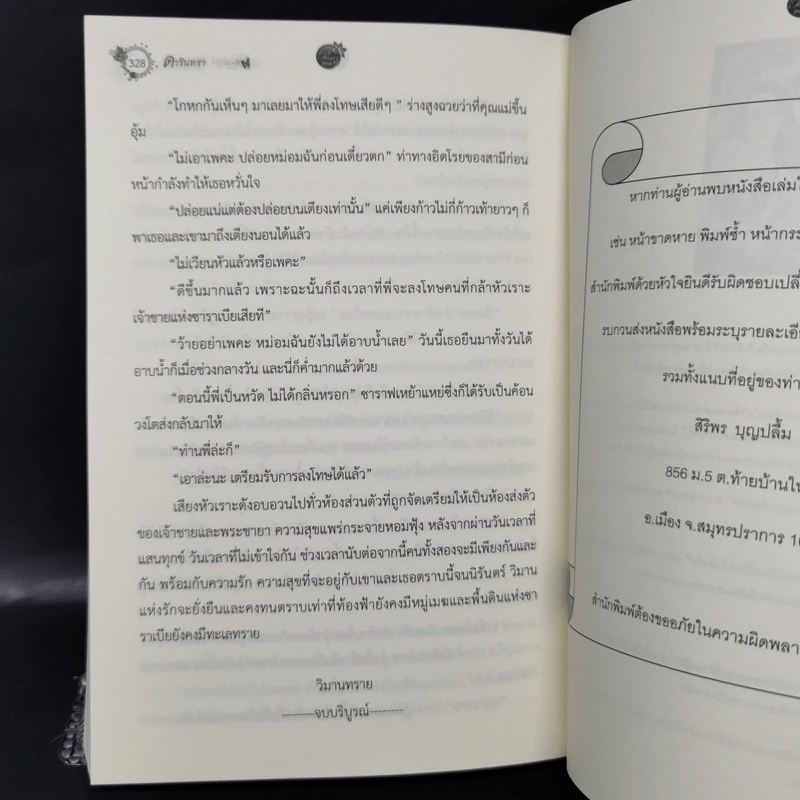 328 ดารินทรา
“โกหกกันเห็นๆ มาเลยมาให้พี่ลงโทษเสียดีๆ ” ร่างสูงฉวยว่าที่คุณแม่ขึ้น
อุ้ม
“ไม่เอาเพคะ ปล่อยหม่อมฉันก่อนเดี๋ยวตก” ท่าทางอิดโรยของสามีก่อน
หน้ากำลังทำให้เธอหวั่นใจ
“ปล่อยแน่แต่ต้องปล่อยบนเตียงเท่านั้น” แค่เพียงก้าวไม่กี่ก้าวเท้ายาวๆ ก็
พาเธอและเขามาถึงเตียงนอนได้แล้ว
“ไม่เวียนหัวแล้วหรือเพคะ”
“ดีขึ้นมากแล้ว เพราะฉะนั้นก็ถึงเวลาที่พี่จะลงโทษคนที่กล้าหัวเราะ
เจ้าชายแห่งซาราเบียเสียที”
“ว้ายอย่าเพคะ หม่อมฉันยังไม่ได้อาบน้ำเลย” วันนี้เธอยืนมาทั้งวันได้
อาบน้ำก็เมื่อช่วงกลางวัน และนี่ก็ค่ำมากแล้วด้วย
“ตอนนี้พี่เป็นหวัด ไม่ได้กลิ่นหรอก” ซาราฟเหย้าแหย่ซึ่งก็ได้รับเป็นค้อน
วงโตส่งกลับมาให้
“ท่านพี่ล่ะก็”
“เอาล่ะนะ เตรียมรับการลงโทษได้แล้ว”
เสียงหัวเราะดังอบอวนไปทั่วห้องส่วนตัวที่ถูกจัดเตรียมให้เป็นห้องส่งตัว
ของเจ้าชายและพระชายา ความสุขแพร่กระจายหอมฟุ้ง หลังจากผ่านวันเวลาที่
แสนทุกข์ วันเวลาที่ไม่เข้าใจกัน ช่วงเวลานับต่อจากนี้คนทั้งสองจะมีเพียงกันและ
กัน พร้อมกับความรัก ความสุขที่จะอยู่กับเขาและเธอตราบนี้จนนิรันดร์ วิมาน
แห่งรักจะยั่งยืนและคงทนตราบเท่าที่ท้องฟ้ายังคงมีหมู่เมฆและพื้นดินแห่งซา
ราเบียยังคงมีทะเลทราย
วิมานทราย
--------จบบริบูรณ์--------
หากท่านผู้อ่านพบหนังสือเล่ม
เช่น หน้าขาดหาย พิมพ์ซ้ำ
สำนักพิมพ์ด้วยหัวใจยินดีรับผิดชอบ
รบกวนส่งหนังสือพร้อมระบุ
รวมทั้งแนบที่อยู่ของ
สิริพร บุญปลื้ม
856 ม.5 ต.ท้ายบ้าน
อ.เมือง จ.สมุทรปราการ
สำนักพิมพ์ต้องขออภัยในความ